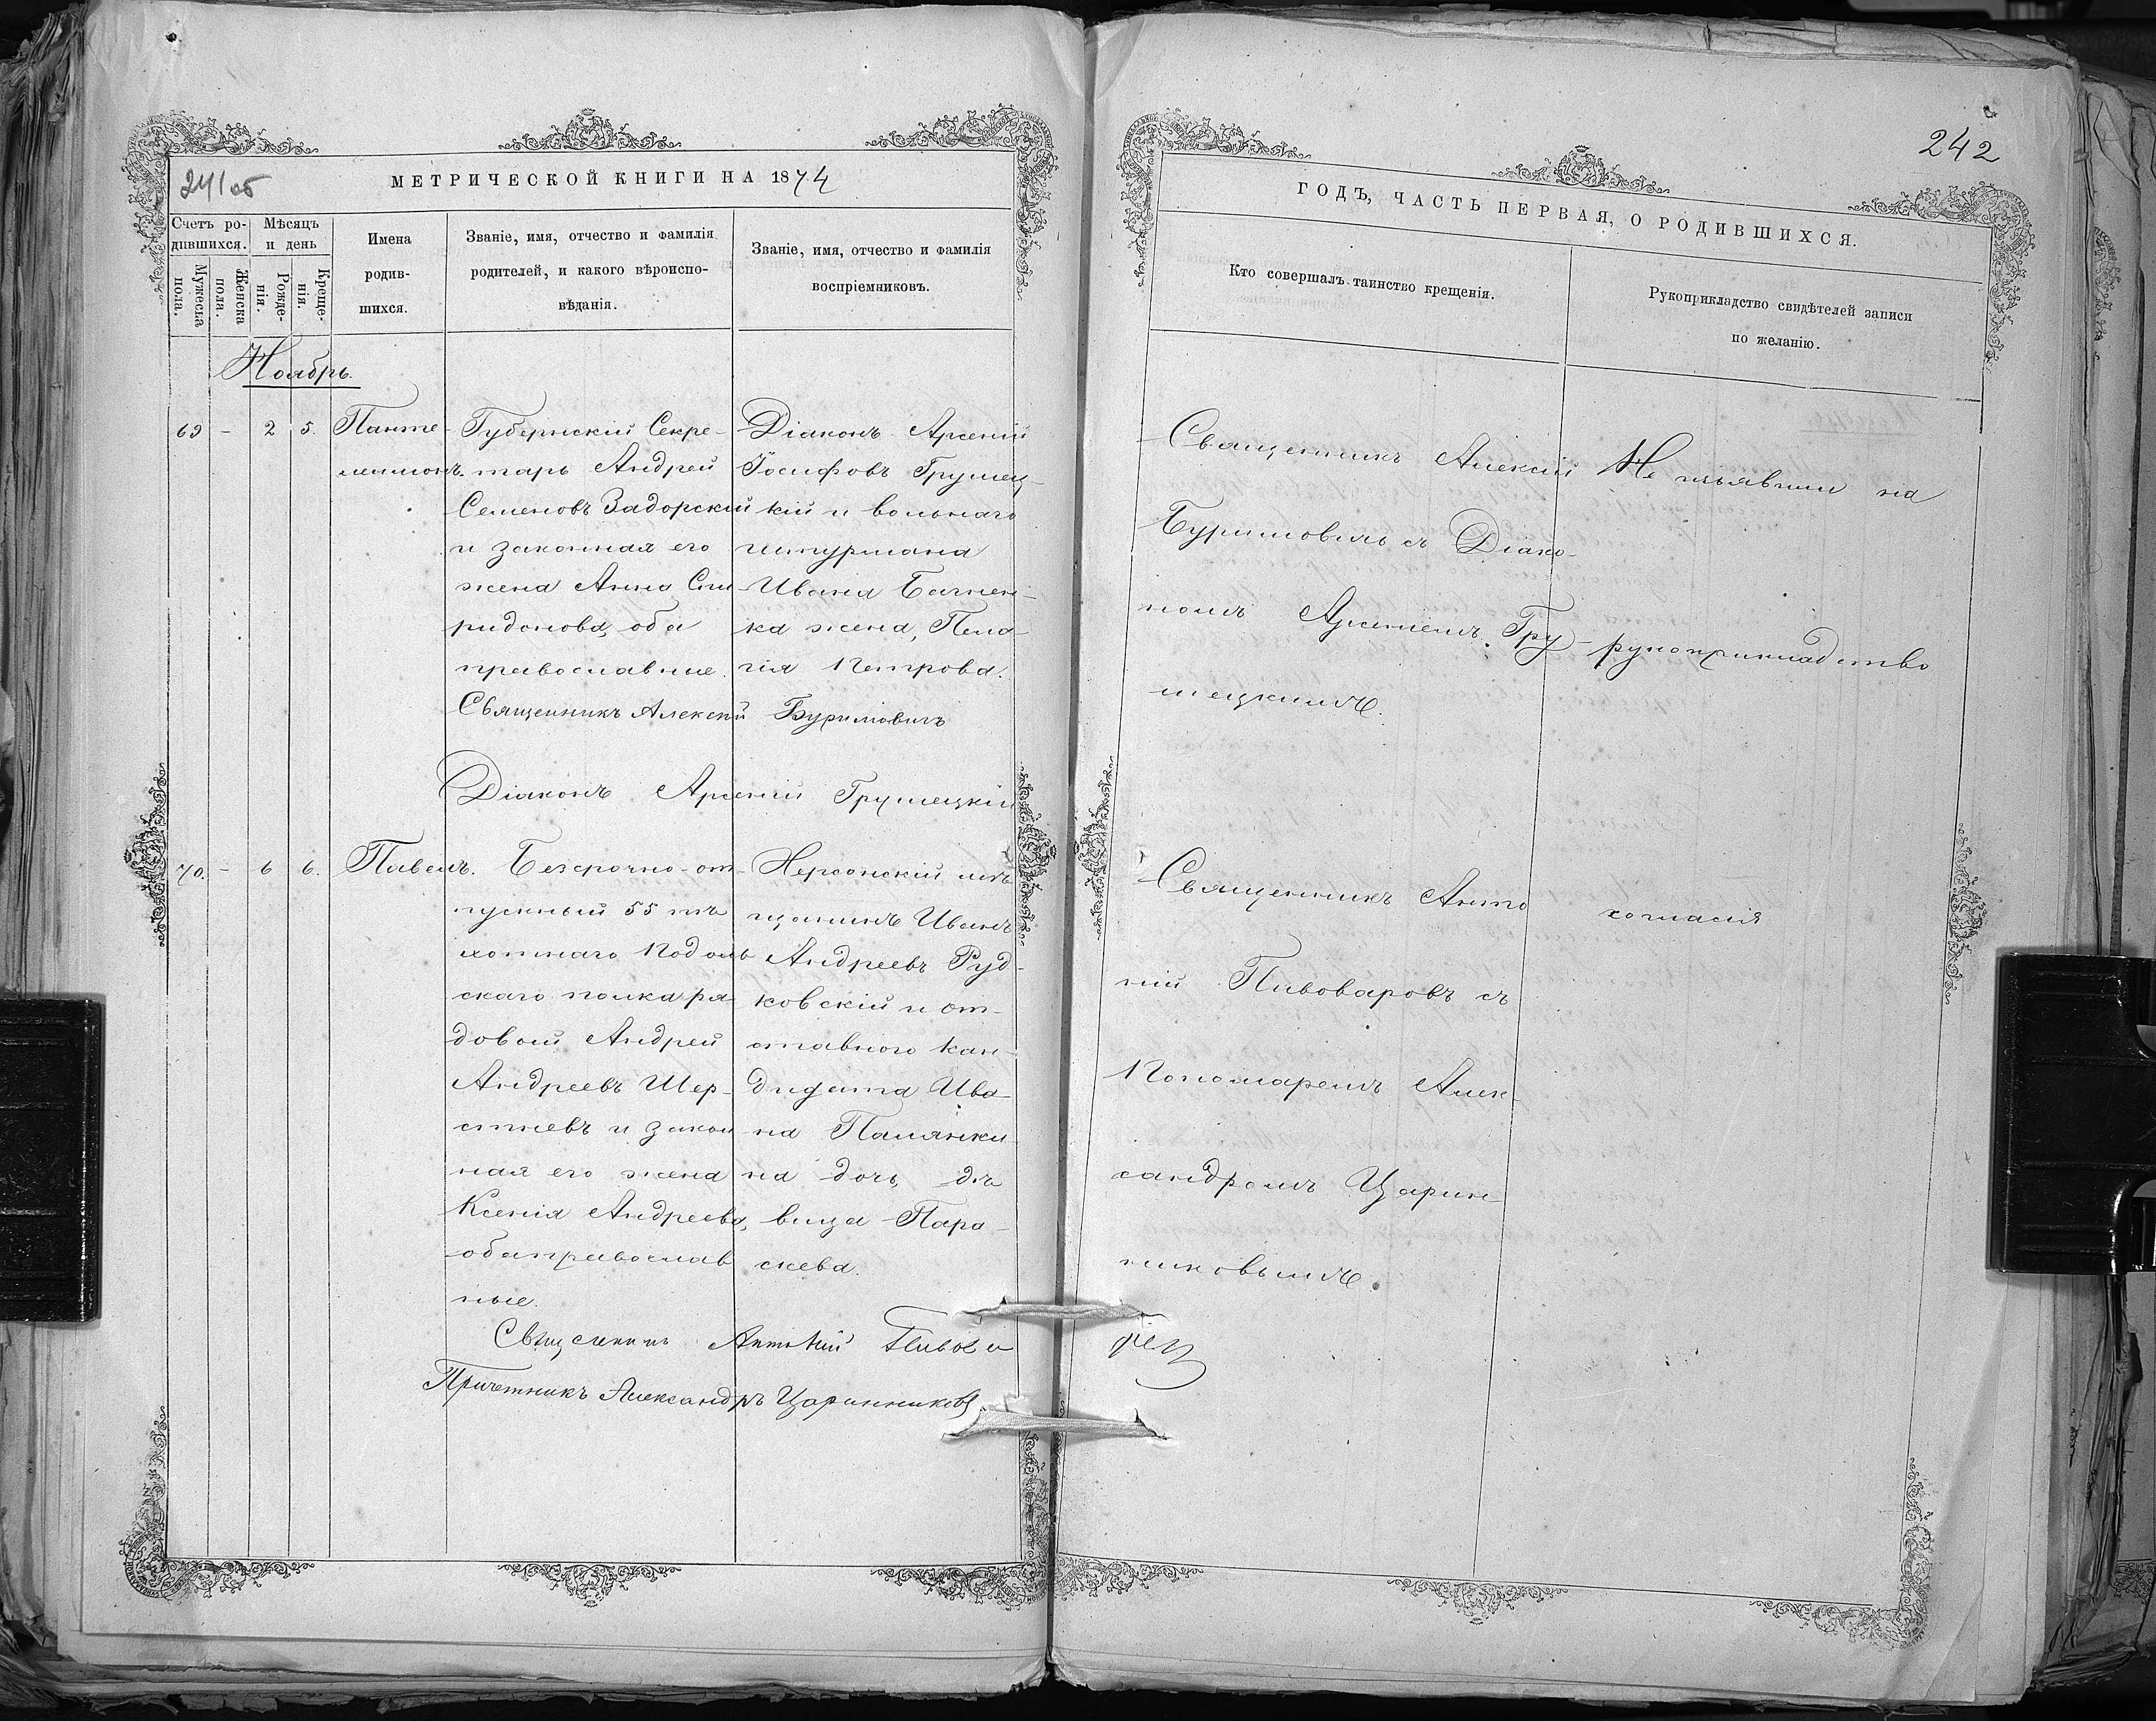 241об
МЕТРИЧЕСКОЙ КНИГИ НА 1874
Счетъ ро-
дившихся.
Мужеска
пола.
Женска
пола.
Мѣсяцъ
и день
Рожде-
нія.
Креще-
нія.
Имена
родив-
шихся.
Званіе, имя, отчество и фамилія
родителей, и какого вѣроиспо-
вѣданія.
Званіе, имя, отчество и фамилія
воспріемниковъ.
Ноябрь.
69 - 2 5. Панте-
леимонъ.
Губернскій Секре-
тарь Андрей
Семеновъ Задорскій
и законная его
жена Анна Спи-
ридонова, оба
православные.
Діаконъ Арсеній
Іосифовъ Грушец-
кій и вольнаго
штурмана
Ивана Бачмен-
ка жена, Пела-
гія Петрова.
Священникъ Алексій Буримовичъ
Діаконъ Арсеній Грушецкій
70. - 6 6. Павелъ.
Безсрочно-от-
пускный 55 пѣ
хотнаго Подоль
скаго полка ря-
довой Андрей
Андреевъ Шер-
стневъ и закон
ная его жена
Ксенія Андреева,
оба православ
ные.
Херсонскій мѣ-
щанинъ Иванъ
Андреевъ Руд-
ковскій и от-
ставного кан-
дидата Ива-
на Палянки-
на дочь, дѣ
вица Пара-
скева.
Священникъ Антоній Пивова
ровъ
Причетникъ Александръ Царинниковъ.
242
ГОДЪ, ЧАСТЬ ПЕРВАЯ, О РОДИВШИХСЯ.
Кто совершалъ таинство крещенія.
Рукоприкладство свидѣтелей записи
по желанію.
Священникъ Алексій
Буримовичъ съ Діако-
номъ Арсеніемъ Гру-
шецкимъ.
Священникъ Анто
ній Пивоваровъ съ
Пономаремъ Алек-
сандромъ Царин-
никовымъ.
Не изъявили на
рукоприкладство
согласія